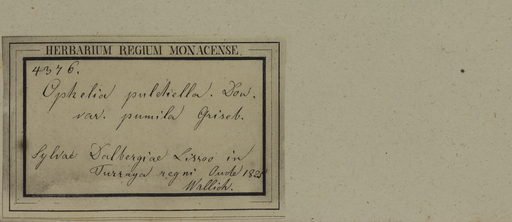 HERBARIUM REGIUM MONACENSE.
4376.
Ophelia pulchella. Don.
var. pumila Griseb.
Sylvae Dalbergiae Lissoo in
Turraya regni Oude 1825
Wallich.